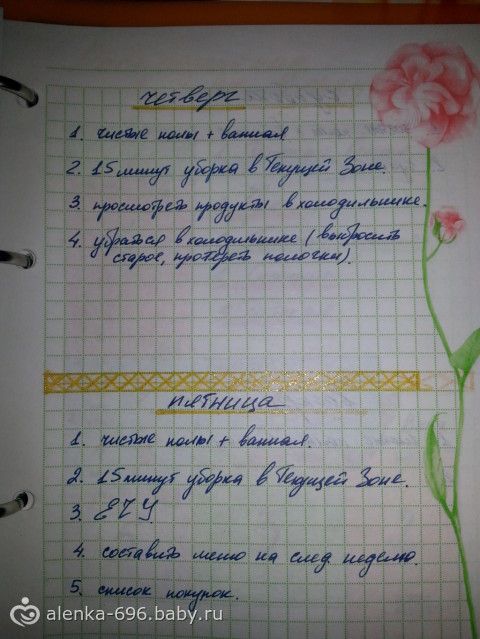 четверг
1. чистые полы + ванная
2. 15 минут уборка в Текущей Зоне.
3. просмотреть продукты в холодильнике.
4. убраться в холодильнике (выбросить
старое, протереть полочки).
пятница
1. чистые полы + ванная.
2. 15 минут уборка в Текущей Зоне.
3. ЕГУ
4. составить меню на след. неделю.
5. список покупок.
alenka-696.baby.ru